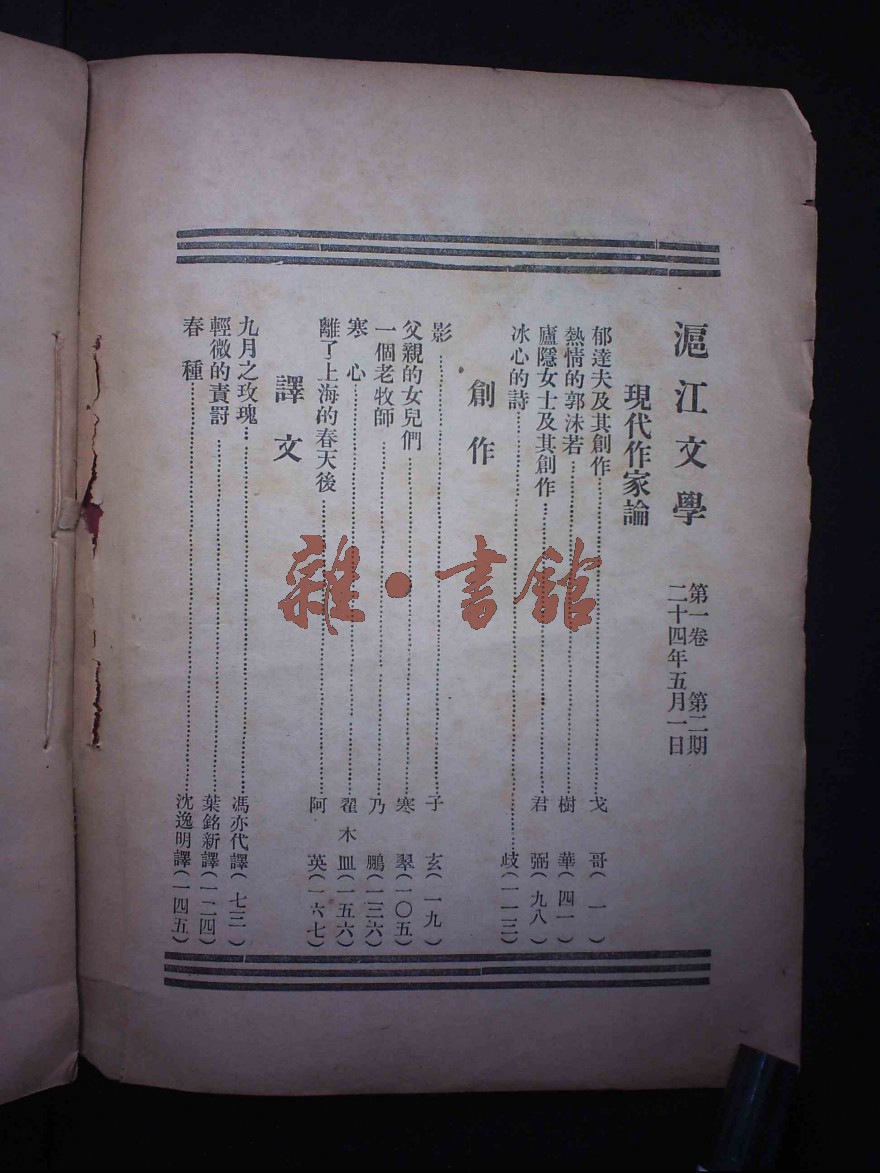 滬江文學
第一卷 第二期
二十四年五月一日
現代作家論
郁達夫及其創作……戈哥(一)
熱情的郭沫若……樹華(四一)
廬隱女士及其創作……君弼(九八)
冰心的詩……歧(一一三)
創作
影……子玄(一九)
父親的女兒們……寒翠(一〇五)
一個老牧師……乃鵬(一三六)
寒心……翟木皿(一五六)
離了上海的春天後……阿英(一六七)
譯文
九月之玫瑰……馮亦代譯(七三)
輕微的責罸……葉銘新譯(一二四)
春種……沈逸明譯(一四五)
雜·書館